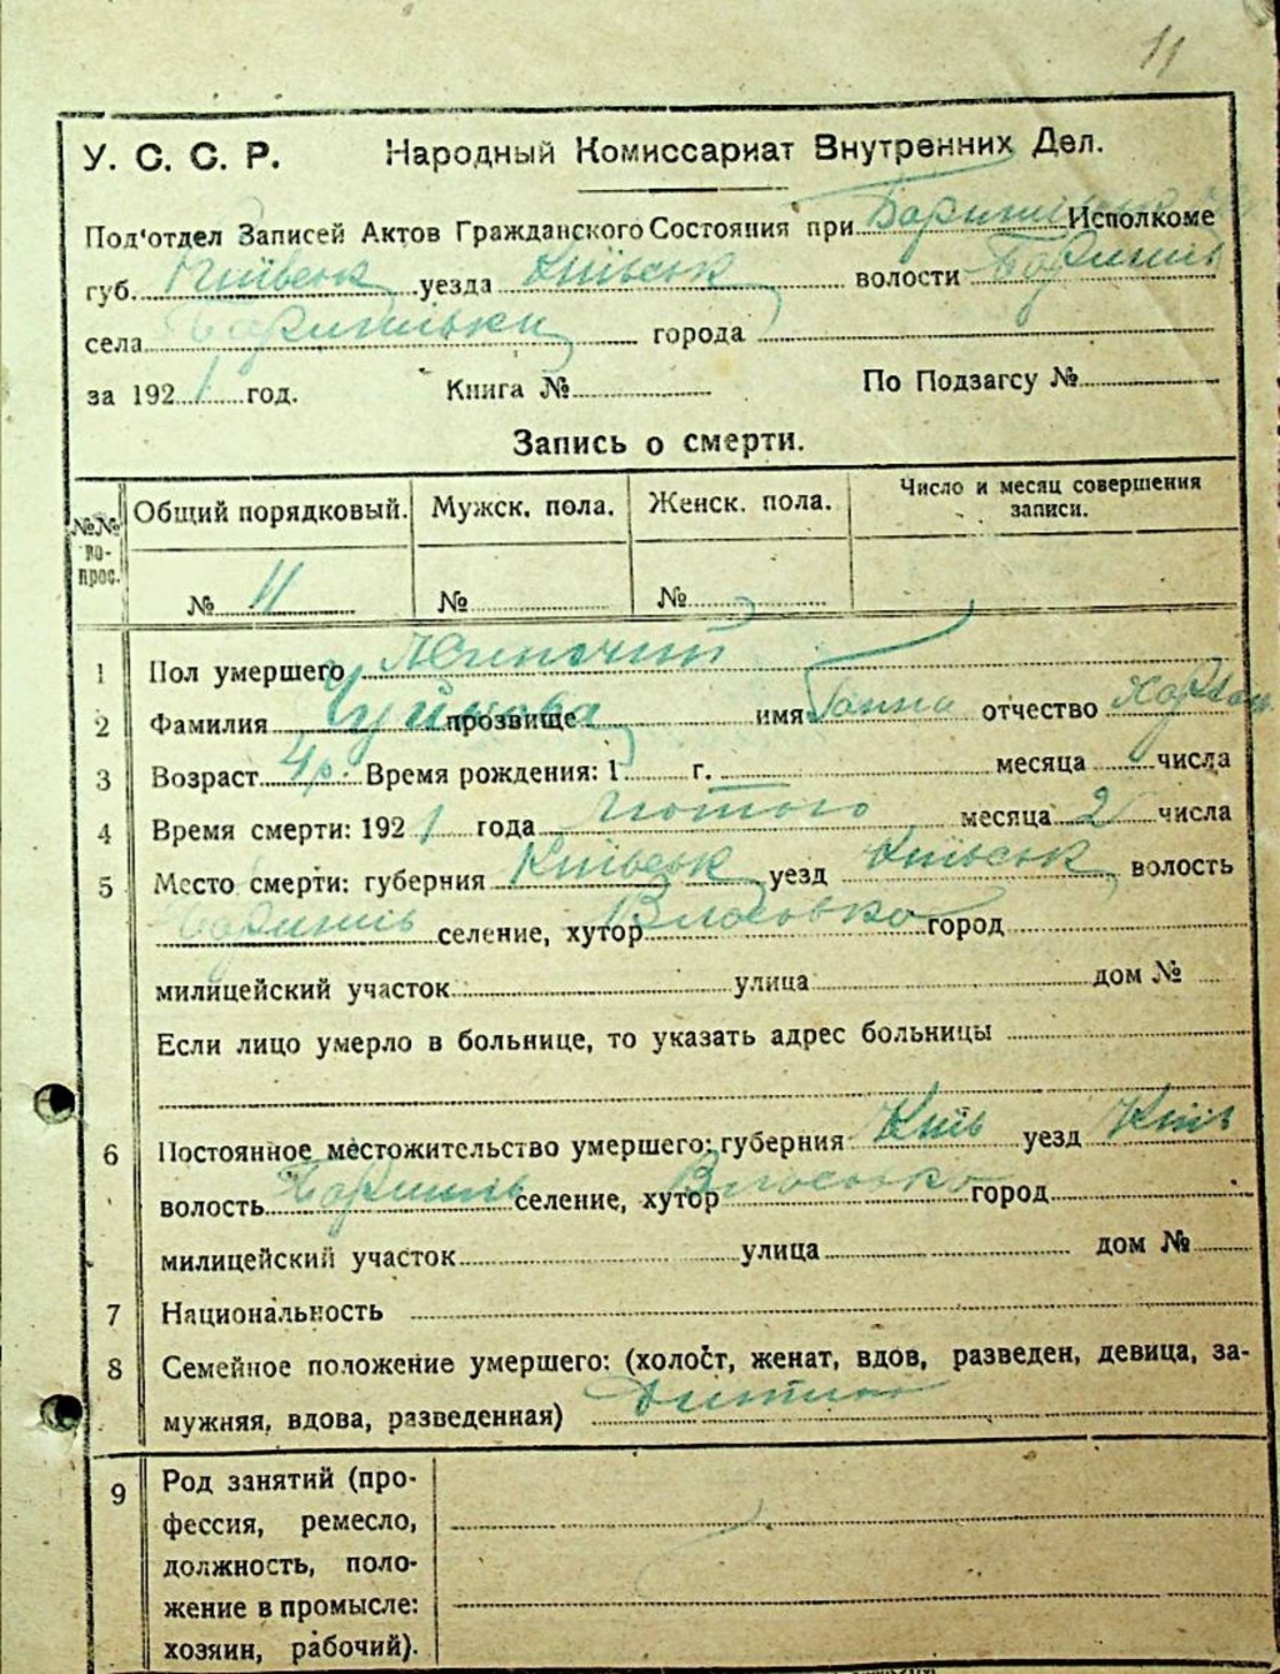 11
У. С. С. Р. Народный Комиссариат Внутренних Дел.
Под'отдел Записей Актов Гражданского Состояния при Исполкоме
губ. Київськ уезда Київськ волости Баришпіль
села города
за 1921 год. Книга № По Подзагсу №
Запись о смерти.
№№ вопрос. Общий порядковый. Мужск. пола. Женск. пола. Число и месяц совершения записи.
№ 11 № №
1 Пол умершего Жиночий
2 Фамилия Чуйкова прозвище имя Ганна отчество
3 Возраст 4 р. Время рождения: 1 г. месяца числа
4 Время смерти: 1921 года Лютого месяца 2 числа
5 Место смерти: губерния Київськ уезд Київськ волость
Баришпіль селение, хутор Власовка город
милицейский участок улица дом №
Если лицо умерло в больнице, то указать адрес больницы
6 Постоянное местожительство умершего: губерния Київ уезд Київ
волость Баришпіль селение, хутор Власовка город
милицейский участок улица дом №
7 Национальность
8 Семейное положение умершего: (холост, женат, вдов, разведен, девица, за-
мужняя, вдова, разведенная) Дитина
9 Род занятий (про-
фессия, ремесло,
должность, поло-
жение в промысле:
хозяин, рабочий).